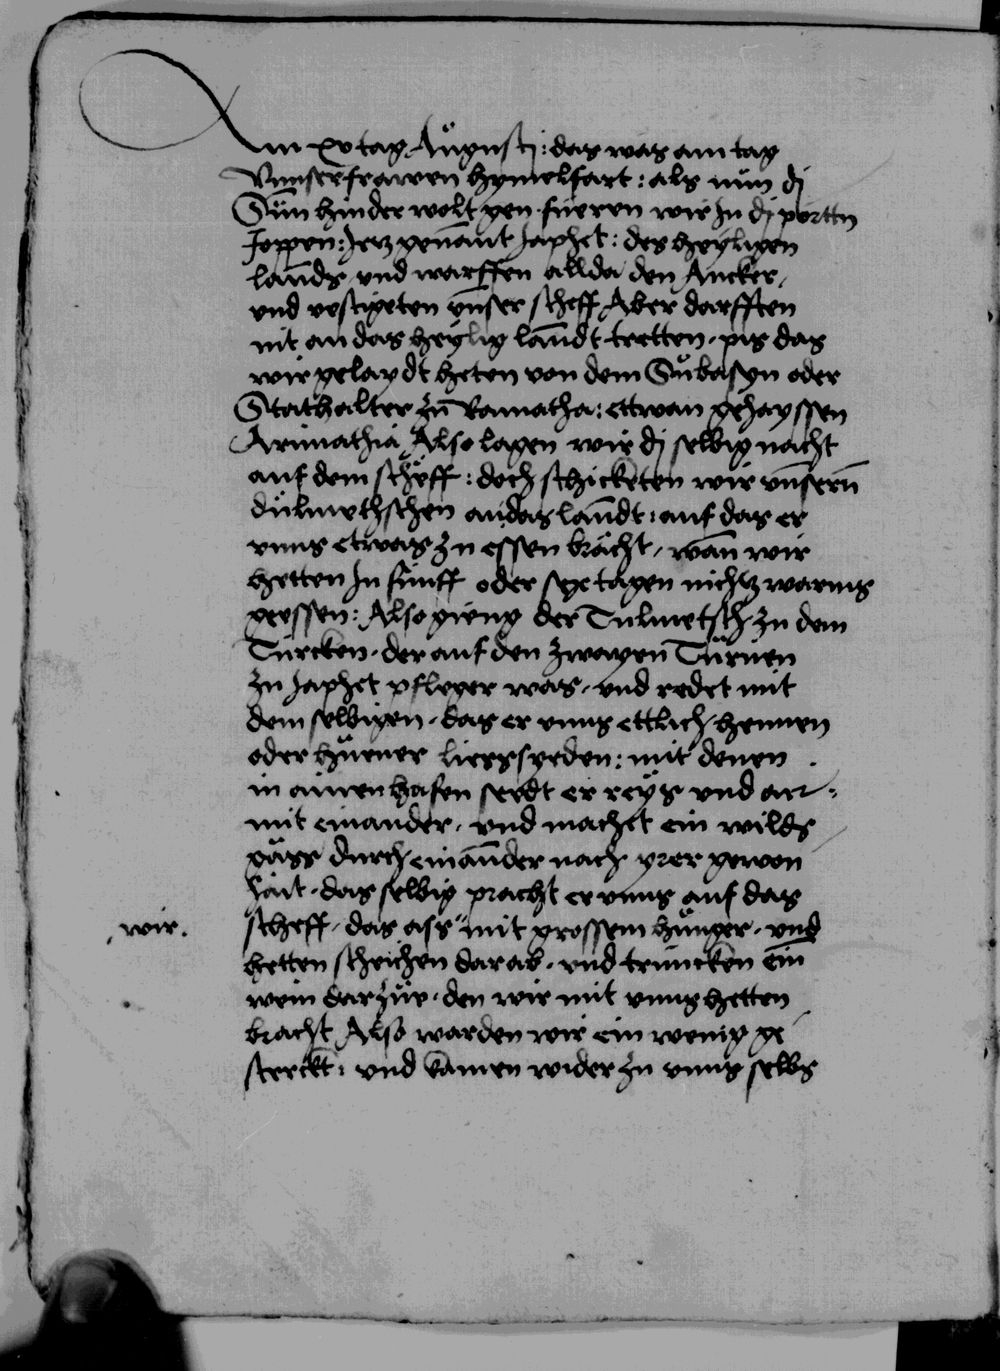 Am xv tag Augusti: das was am tag
Vnnser frawen hymelfart: als nun dj
Sun hinder wolt gen fueren wir In dj portn
Joppen: Jetz genant Japhet: des heyligen
lannds und warffen allda den Ancker,
und vestigeten unser scheff Aber darfften
nit an das heylig lanndt tretten. pis das
wir gelaydt heten von dem Subasyn oder
Stathalter zu Ramatha: ettwan gehayssen
Arimathia Also lagen wir dj selbig nacht
auf dem scheff: doch schickten wir unsern
dulmethschen an das lanndt: auf das er
unns etwas zu essen bracht, wan wir
hetten In funff oder sex tagen nichtz warms
gessen: Also gieng der Tulmetsch zu dem
Turcken. der auf den zwayen Turnen
zu Japhet pfleger was. und redet mit
dem selbigen. das er unns ettlich hennen
oder huener liess syeden: mit denen
in ainen hafen serdt er reys und arr
mit einander. und machet ein wilds
gass durch einannder nach yrer gewon
hait. das selbig pracht er unns auf das
wir.
scheff. das ass mit grossem hunger. und
hetten scheichen darab. und truncken ein
wein darzue. den wir mit unns hetten
bracht Also warden wir ein wenig ge
sterckt: und kamen wider zu unns selbs